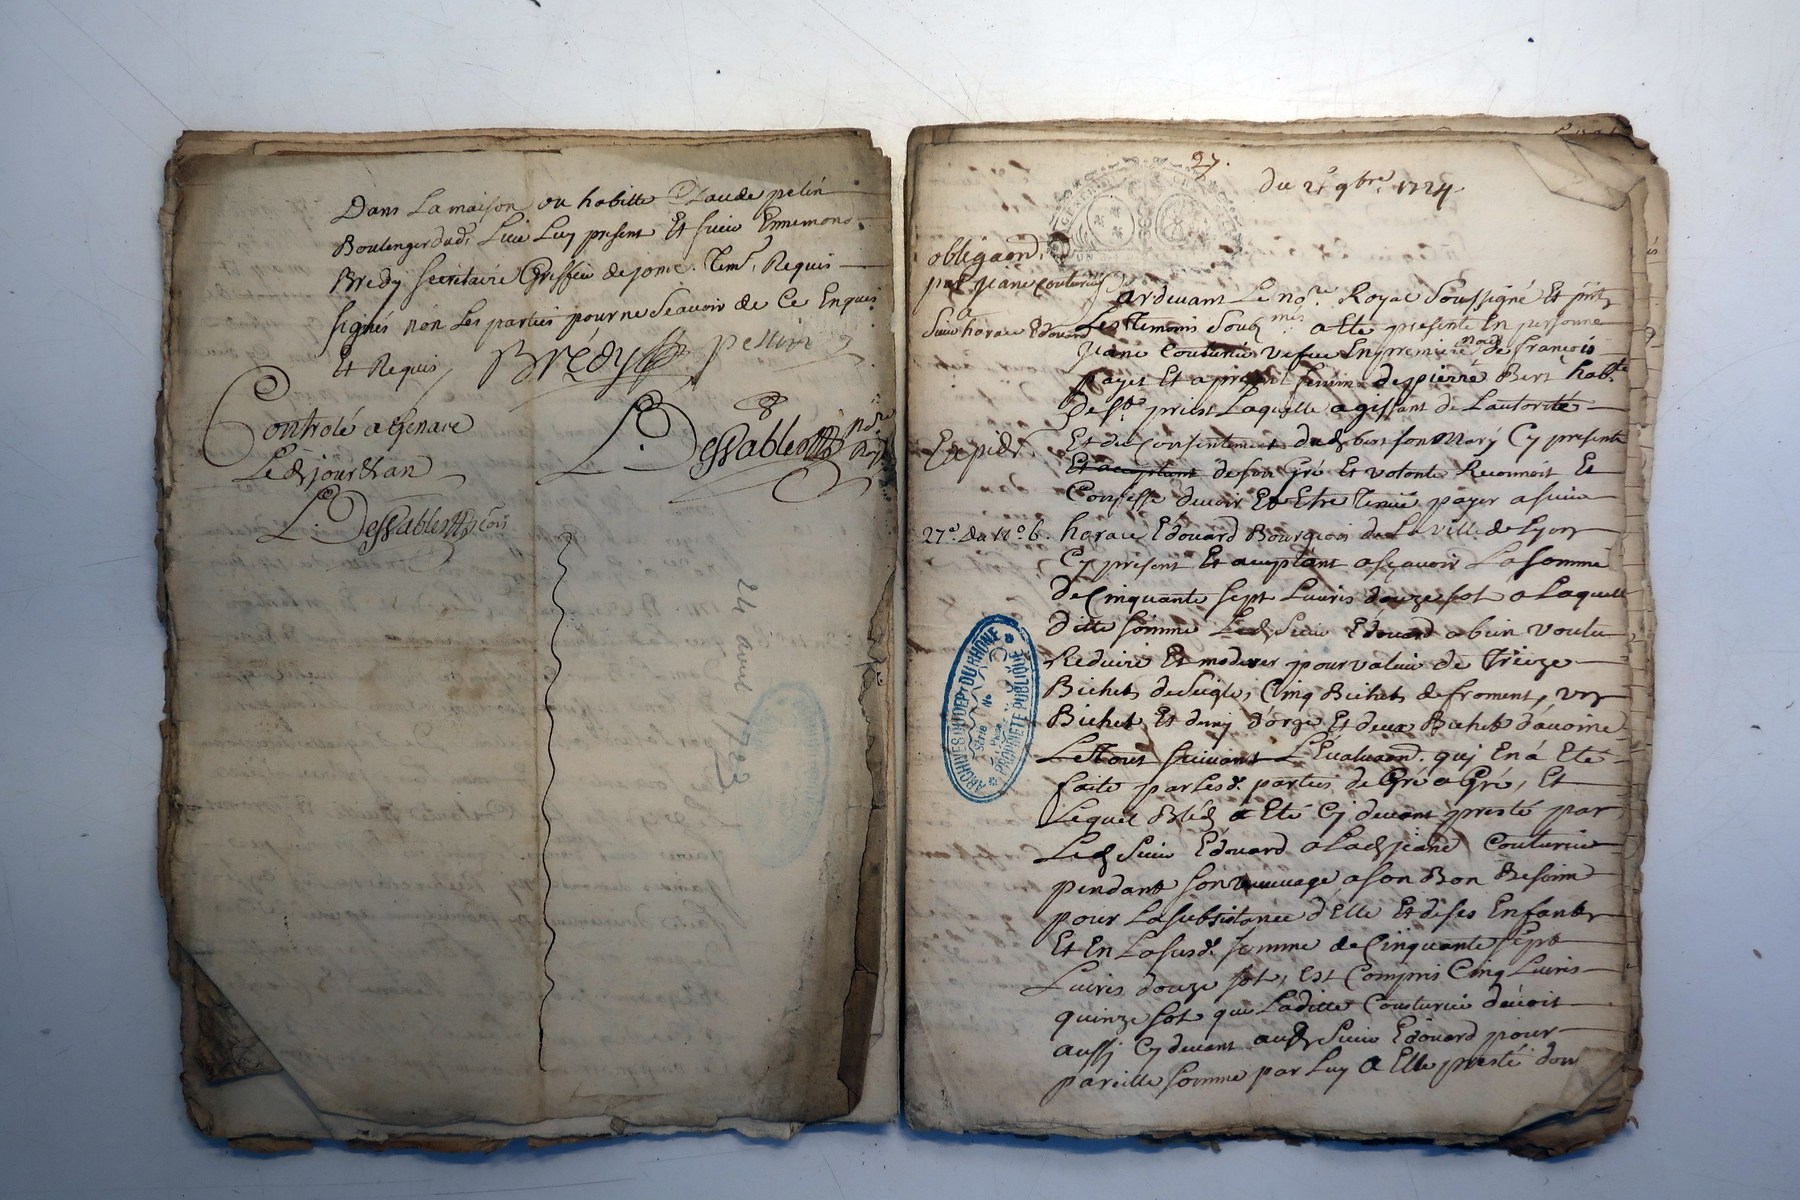 Dans La maison ou habitte Claude pelin
Boulenger dud. Lieu Luy present Et sieur Ennemond
Bredy secretaire Greffier de jonc. Tem. Requis
signés non Les parties pour ne scavoir de Ce Enquis
Et Requis
BRédy pellin
Controlé a Genave
Led jour & an
L. Dessables nore Roy
L. Dessables
24 avril 1723
27.
du 2e 9bre. 1724.
obligaon.
par jeane couturier
a
sieur horace Edouard
Expédr
27e. du No 6.
Pardevant Le nore. Royal soussigné Et pnts
Les Temoins soubsmes a Eté presente En personne
jeane couturier vefve En premiere noces de françois
payet Et a present femme de pierre Bert habte
de St. priest Laquelle agissant de Lautorité
Et du Consentement dud bert son mary Cy present
Et acceptant de son Gré Et volonté Reconnoit Et
Confesse devoir Et Etre Tenue payer a sieur
horace Edouard Bourgeois de La ville de Lyon
Cy present Et acceptant asçavoir La somme
de Cinquante sept Livres douze sol a Laquelle
ditte somme Led sieur Edouard a bien voulu
Reduire Et moderer pour valeur de Treize
Bichets de seigle, Cinq Bichets de froment, un
Bichet Et demy d'orge Et deux Bichets d'avoine
Le Tout suivant L'Evaluaon. quj En á Eté
faite par Lesd. parties de Gré a Gré, Et
Lequel Bléd a Eté Cj devant presté par
Led sieur Edouard a Lad jeane Couturier
pendant son veuvage a son Bon Besoin
pour La subsistance d'Elle Et de ses Enfants
Et En La susd. somme de Cinquante sept
Livres douze sol, Est Compris Cinq Livres
quinze sol que Laditte Couturier devoit
aussj Cy devant aud sieur Edouard pour
pareille somme par Luy a Elle presté dont
ARCHIVES DU DEPt DU RHONE
PROPRIÉTÉ PUBLIQUE
Série